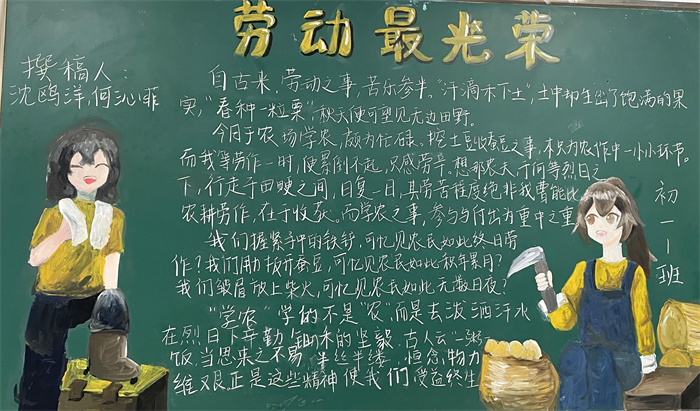 劳动最光荣
撰稿人：
沈鸥洋,何沁菲
自古来，劳动之事，苦乐参半。“汗滴禾下土”，土中却生出了饱满的果
实，“春种一粒粟”，秋天便可望见无边田野。
今日于农场学农，颇为忙碌。挖土豆收蚕豆之事，本只为农作中一小小环节。
而我等劳作一时，便累倒不起，只感劳辛。想那农夫，于何等烈日之
下，行走于田畴之间，日复一日，其劳苦程度绝非我曹能比
农耕劳作，在于收获。而学农之事，参与与付出为重中之重
我们握紧手中的铁铲，可忆见农民如此终日劳
作？我们剥开蚕豆，可忆见农民如此积年累月？
我们皱眉放上柴火，可忆见农民如此无数日夜？
“学农”学的不是“农”而是去泼洒汗水
在烈日下辛勤的坚毅.古人云“一粥
饭,当思来之不易,半丝半缕,恒念物力
维艰,正是这些精神使我们受益终生
初一1班